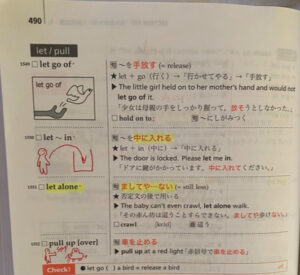 490
let / pull
1549 let go of
熟 ～を手放す (= release)
★ let + go (行く) →「行かせてやる」→「手放す」
let go of
▶ The little girl held on to her mother's hand and would not
let go of it.
「少女は母親の手をしっかり握って, 放そうとしなかった。」
□ hold on to: 熟 ～にしがみつく
1550 let ～ in
熟 ～を中に入れる
★ let + in (中に) →「中に入れる」
▶ The door is locked. Please let me in.
「ドアに鍵がかかっています。中に入れてください。」
1551 let alone
熟 ましてや…ない (= still less)
★ 否定文の後で用いる
▶ The baby can't even crawl, let alone walk.
「その赤ん坊は這うこともできない。ましてや歩けない。」
□ crawl [krɔ́:l] 動 這う
1552 pull up [over]
熟 車を止める
▶ pull up at a red light「赤信号で車を止める」
Check! ● let go ( ) a bird = release a bird